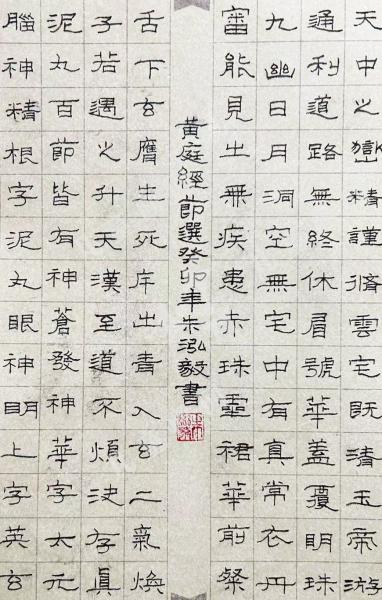 天中之嶽精謹脩雲宅既清玉帝游
通利道路無終休眉號華蓋覆明珠
九幽日月洞空無宅中有真常衣丹
審能見之無疾患赤珠靈裙華前粲
黃庭經節選癸卯年朱泓毅書
舌下玄膺生死岸出青入玄二氣煥
子若遇之升天漢至道不煩決存真
泥丸百節皆有神蒼發神華字太元
腦神精根字泥丸眼神明上字英玄